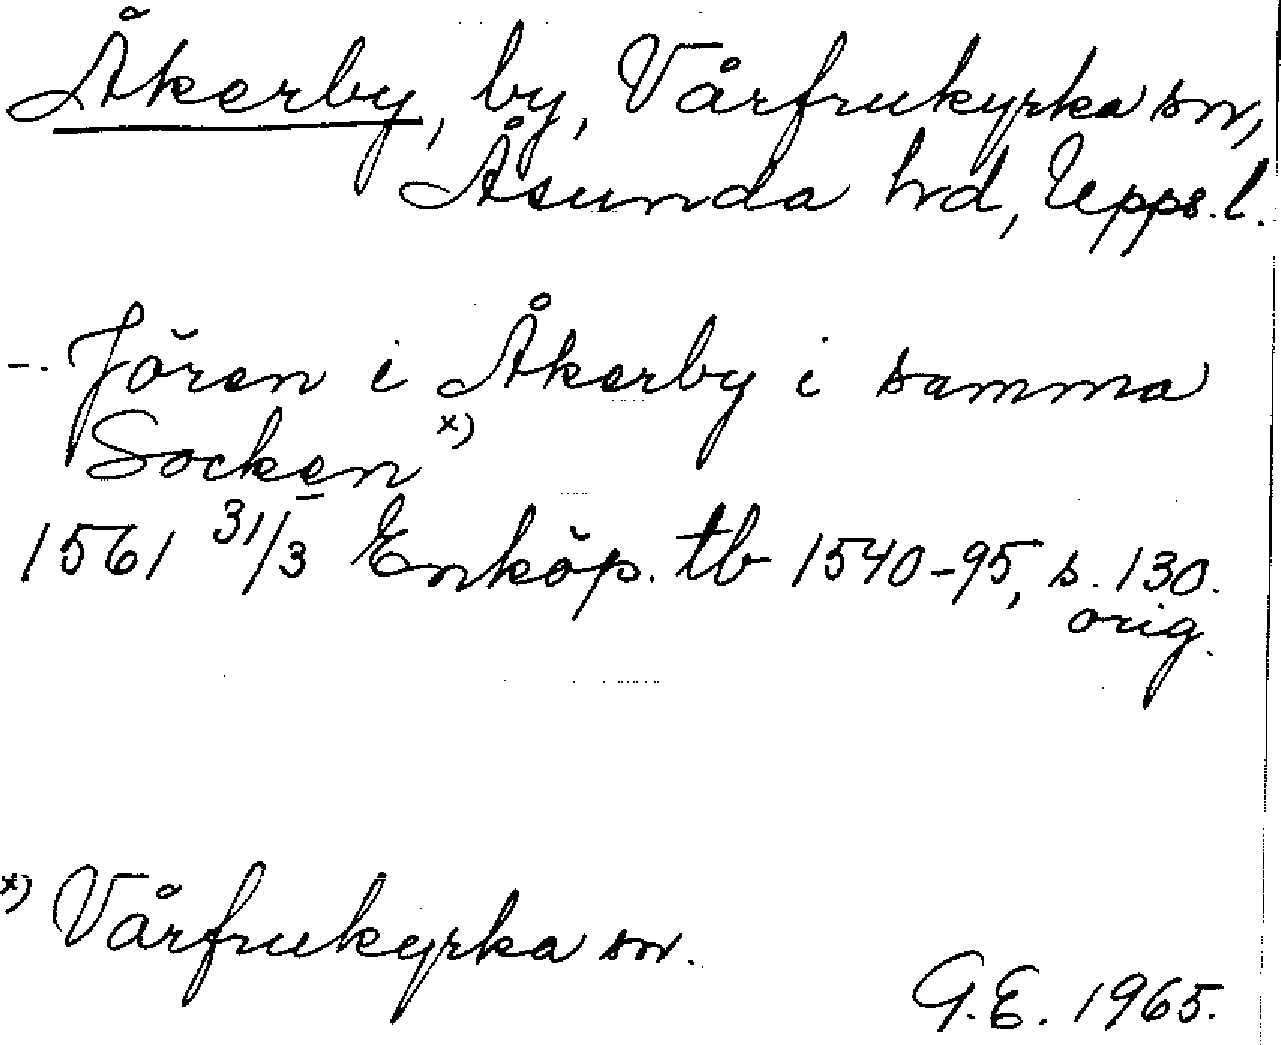 Åkerby, by, Vårfrukyrka sn,
Åsunda hd, Upps. l.
-. Jören i Åkerby i samma
Socken x)
1561 31/3 Enköp. tb 1540-95, s. 130.
orig.
x) Vårfrukyrka sn.
G.E. 1965.